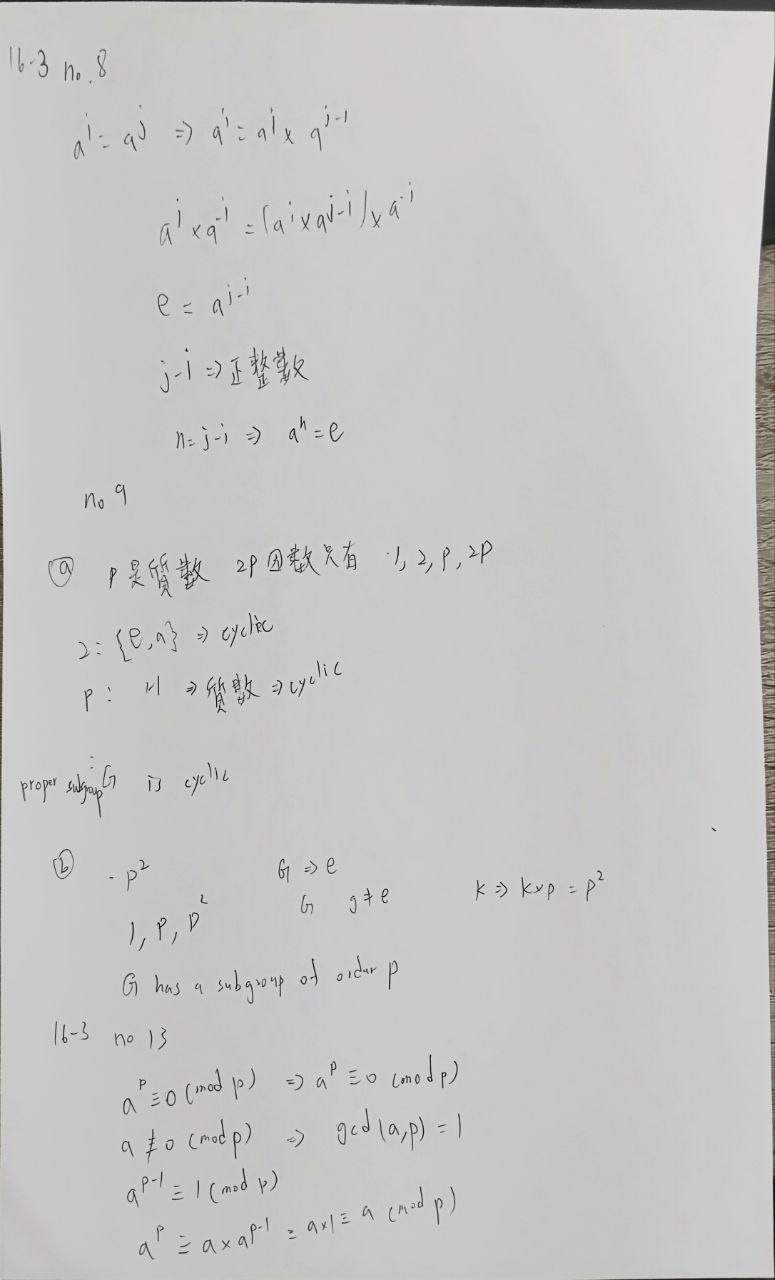 16-3 no.8
a^i = a^j ⇒ a^i = a^i × a^{j-i}
a^i × a^{-i} = (a^i × a^{j-i}) × a^{-i}
e = a^{j-i}
j-i ⇒ 正整數
n = j-i ⇒ a^n = e
no 9
ⓐ p是質數 2P因數只有 1, 2, P, 2P
2: {e, a} ⇒ cyclic
P: H ⇒ 質數 ⇒ cyclic
proper subgroup G is cyclic
ⓑ - p^2 G ⇒ e
1, P, P^2 G g≠e k ⇒ k×p = p^2
G has a subgroup of order p
16-3 no 13
a^p ≡ 0 (mod p) ⇒ a^p ≡ 0 (mod p)
a ≢ 0 (mod p) ⇒ gcd(a,p) = 1
a^{p-1} ≡ 1 (mod p)
a^p ≡ a × a^{p-1} ≡ a×1 ≡ a (mod p)